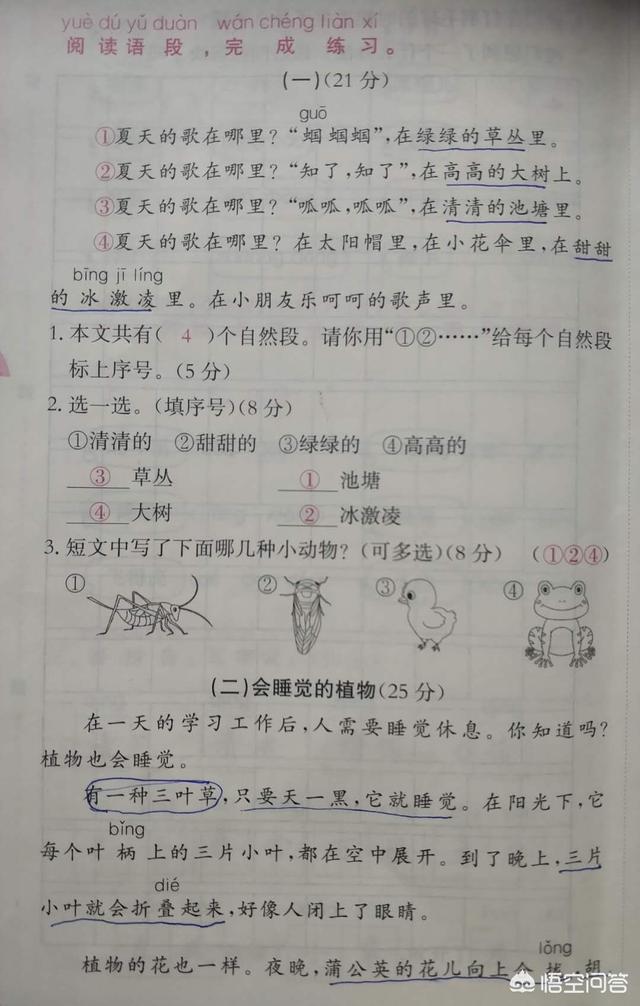 yuè dú yǔ duàn wán chéng liàn xí
阅读语段，完成练习。
(一)(21分)
guō
①夏天的歌在哪里？“蝈蝈蝈”，在绿绿的草丛里。
②夏天的歌在哪里？“知了，知了”，在高高的大树上。
③夏天的歌在哪里？“呱呱，呱呱”，在清清的池塘里。
④夏天的歌在哪里？在太阳帽里，在小花伞里，在甜甜
bīng jī líng
的冰激凌里。在小朋友乐呵呵的歌声里。
1. 本文共有( 4 )个自然段。请你用“①②……”给每个自然段
标上序号。(5分)
2. 选一选。(填序号)(8分)
①清清的 ②甜甜的 ③绿绿的 ④高高的
③草丛 ①池塘
④大树 ②冰激凌
3. 短文中写了下面哪几种小动物？(可多选)(8分) (①②④)
① ② ③ ④
(二)会睡觉的植物(25分)
在一天的学习工作后，人需要睡觉休息。你知道吗？
植物也会睡觉。
有一种三叶草，只要天一黑，它就睡觉。在阳光下，它
bǐng
每个叶柄上的三片小叶，都在空中展开。到了晚上，三片
dié
小叶就会折叠起来，好像人闭上了眼睛。
lǒng
植物的花也一样。夜晚，蒲公英的花儿向上合拢，胡
悟空问答